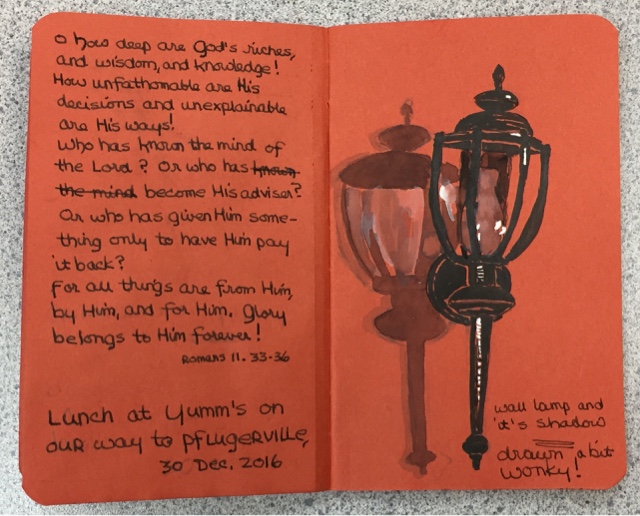 O how deep are God's riches,
and wisdom, and knowledge!
How unfathomable are His
decisions and unexplainable
are His ways!
Who has known the mind of
the Lord? Or who has known
the mind become His adviser?
Or who has given Him some-
thing only to have Him pay
it back?
For all things are from Him,
by Him, and for Him. Glory
belongs to Him forever!
Romans 11. 33-36
Lunch at Yumm's on
our way to Pflugerville,
30 Dec. 2016
wall lamp and
it's shadow
drawn a bit
wonky!